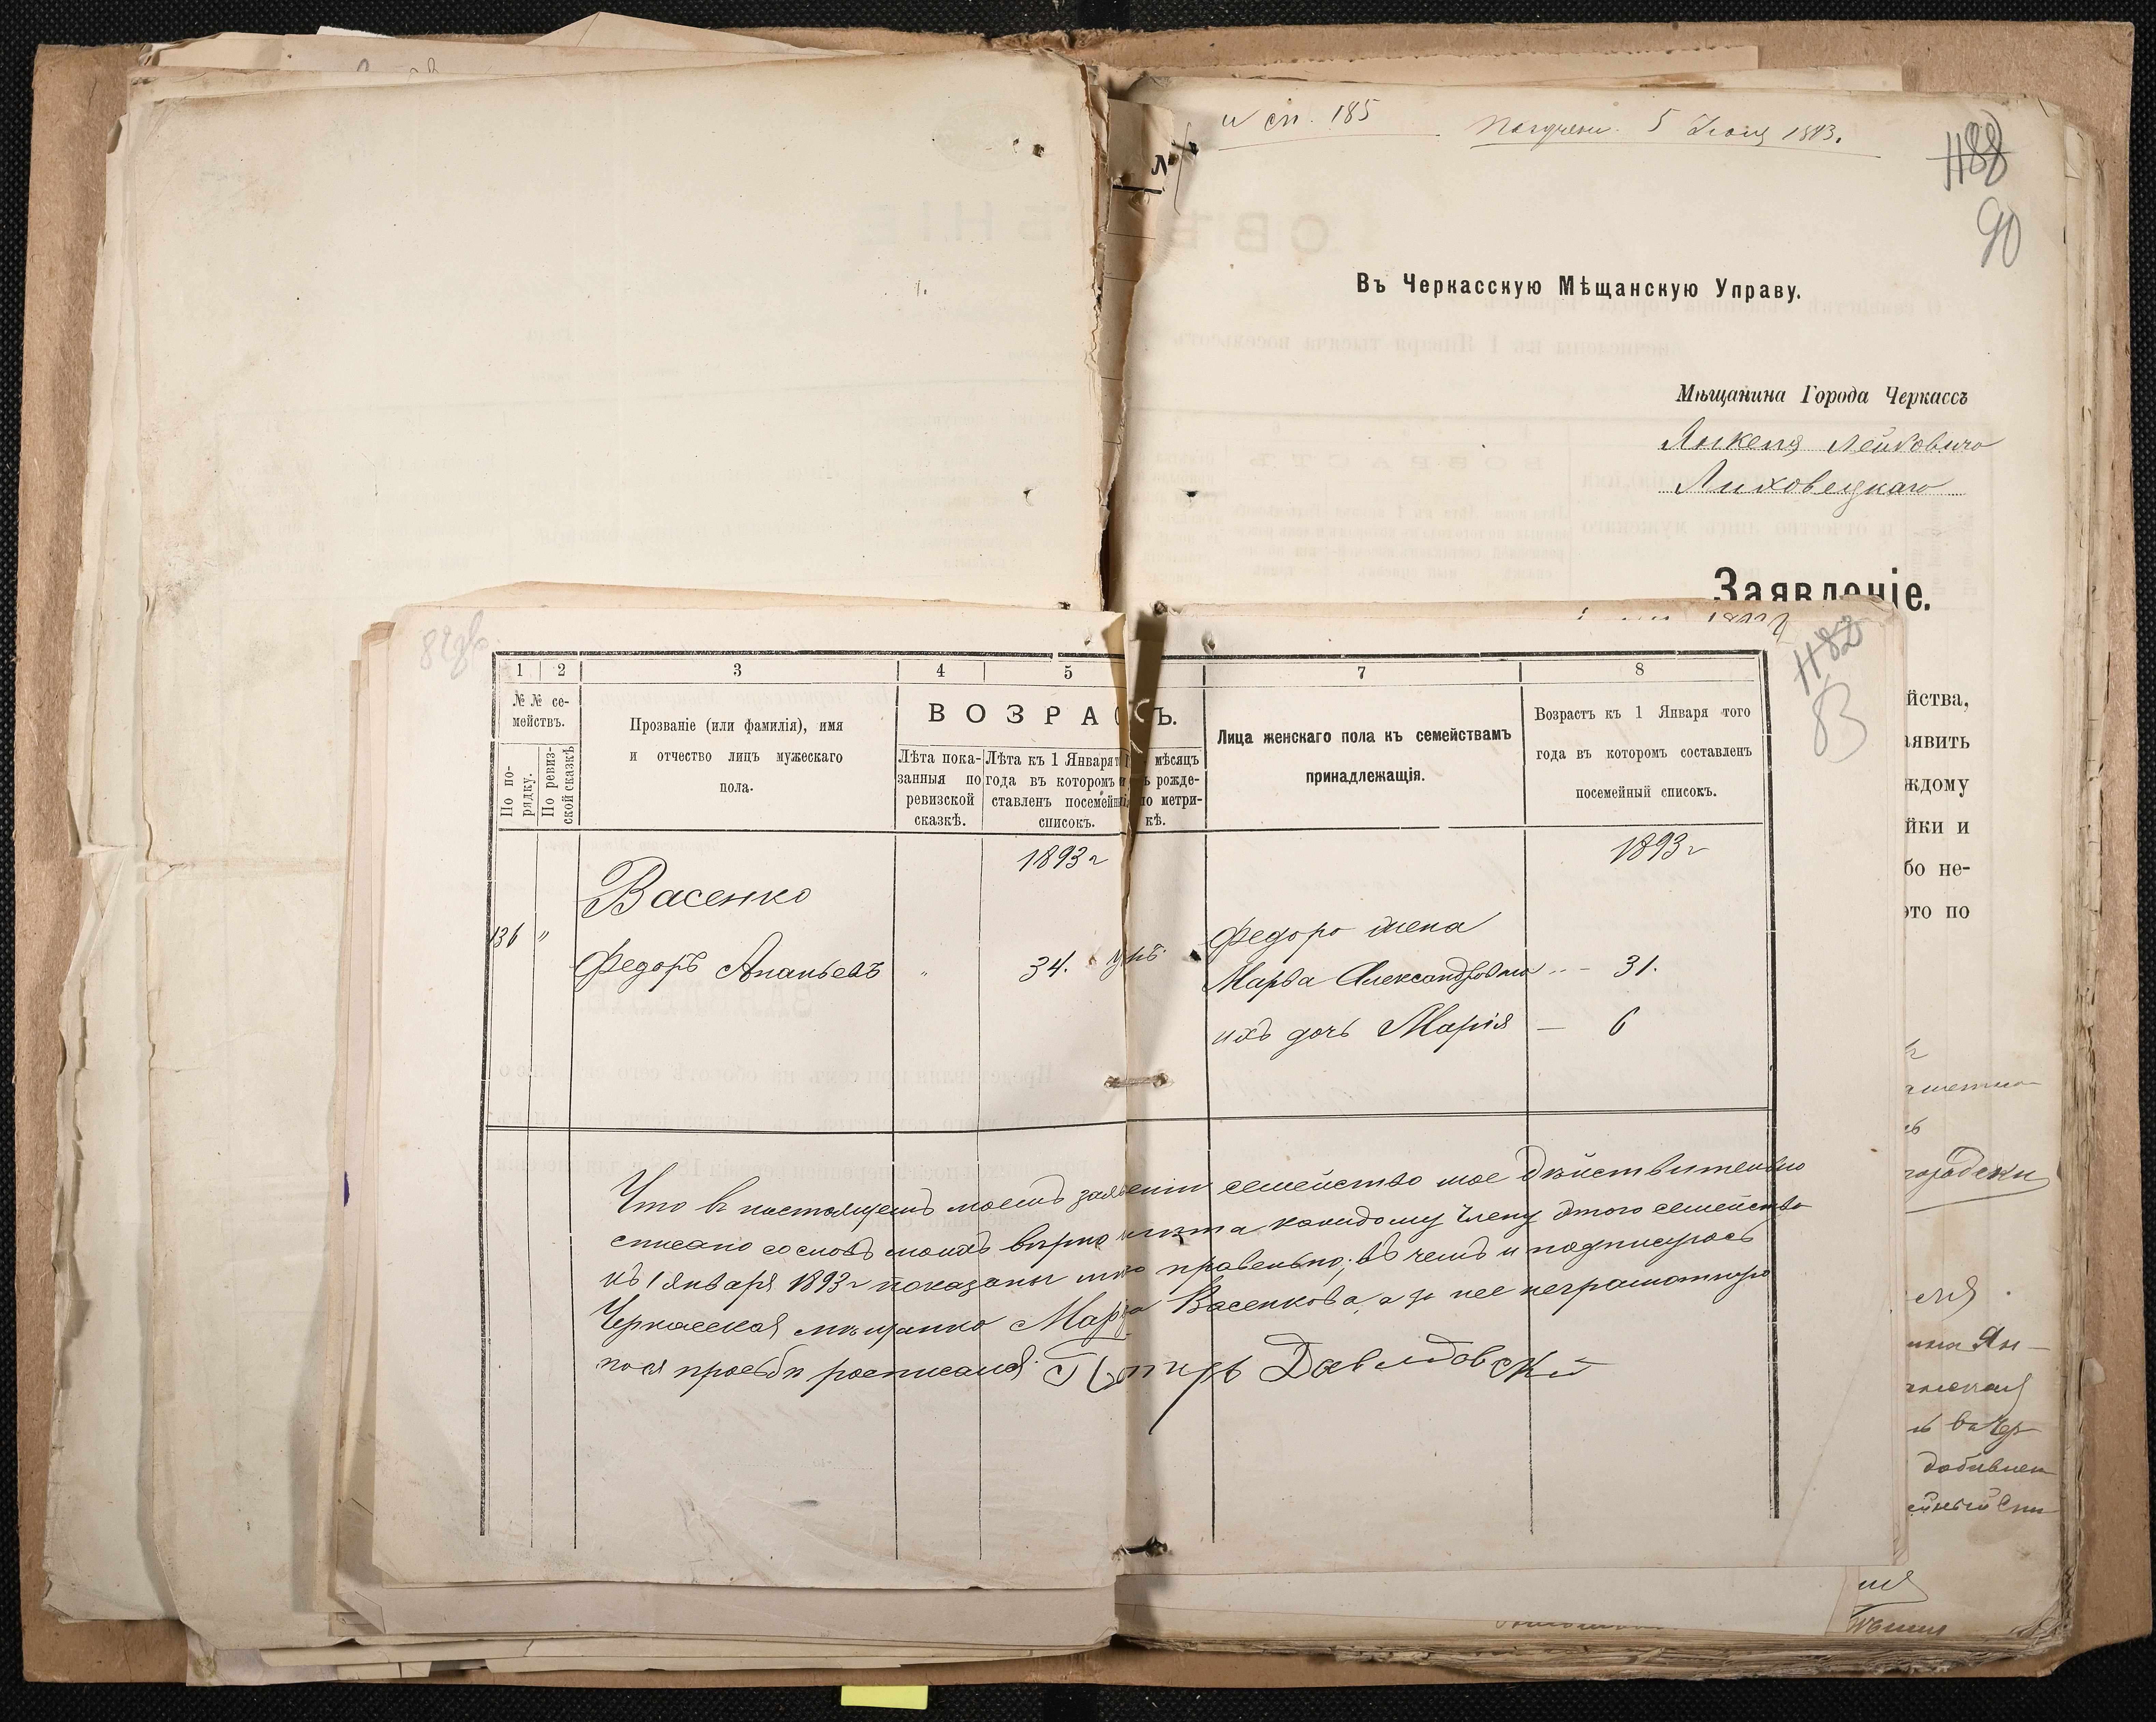 и сп. 185
Получено 5 Июня 1893.
№
1188
90
Въ Черкасскую Мѣщанскую Управу.
Мѣщанина Города Черкассъ
Янкеля Лейбовича
Лиховецкаго
Заявленіе.
йства,
аявить
ждому
йки и
бо не-
это по
добивлен
82об
1182
83
1 2 3 4 5 7 8
№ № се-
мействъ.
По по-
рядку.
По ревиз-
ской сказкѣ
Прозваніе (или фамилія), имя
и отчество лицъ мужескаго
пола.
ВОЗРАС Ъ.
Лѣта пока-
занныя по
ревизской
сказкѣ.
Лѣта къ 1 Января т
года въ которомъ
ставленъ посемейн
списокъ.
мѣсяцъ
ь рожде-
по метри-
кѣ.
Лица женскаго пола къ семействамъ
принадлежащія.
Возрастъ къ 1 Января того
года въ которомъ составленъ
посемейный списокъ.
1893 г 1893 г
Васенко
136 "
Федоръ Ананьевъ " 34.
Федора жена
Марѳа Александровна - 31.
ихъ дочь Марія — 6
Что въ настоящемъ моемъ заявленіи семейство мое дѣйствительно
списано со словъ моихъ вѣрно и лѣта каждому члену этого семейства
къ 1 января 1893 г показаны мною правельно; въ чемъ и подписуюсь
Черкасская мѣщанка Марѳа Васенкова, а за нее неграмотную
по ея просьбѣ росписался Давидовский